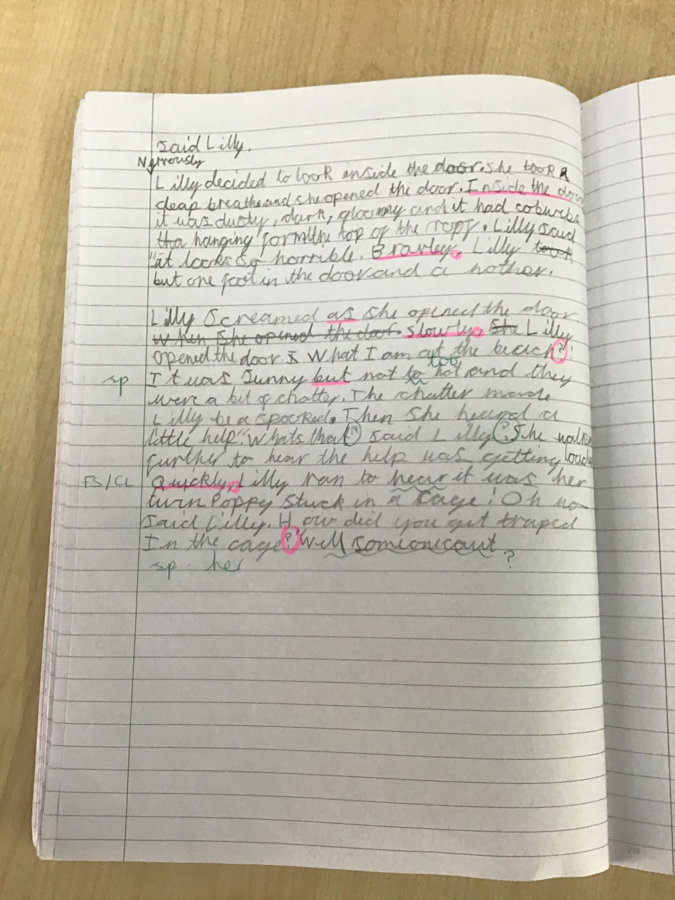 said Lilly.
Nervously
Lilly decided to look inside the door. She took a
deap breathe and she opened the door. Inside the door
it was dusty, dark, gloomy and it had cobwebs
tha hanging form the top of the roof. Lilly said
"it looks so horrible. Bravley, Lilly took
but one foot in the door and a nother.
Lilly Screamed as she opened the door
when she opened the door. slowly, She Lilly
opened the door. What I am at the beach?
too
sp It was Sunny but not to hot and they
were a bit of chatter. The chatter made
Lilly be a spooked. Then she heard a
little help. Whats that? said Lilly. She walk
further to hear the help was getting loud
FS/CL Quickly, Lilly ran to hear it was her
twin Poppy Stuck in a Cage! Oh no
Said Lilly. How did you get traped
In the cage? Well
sp her ?